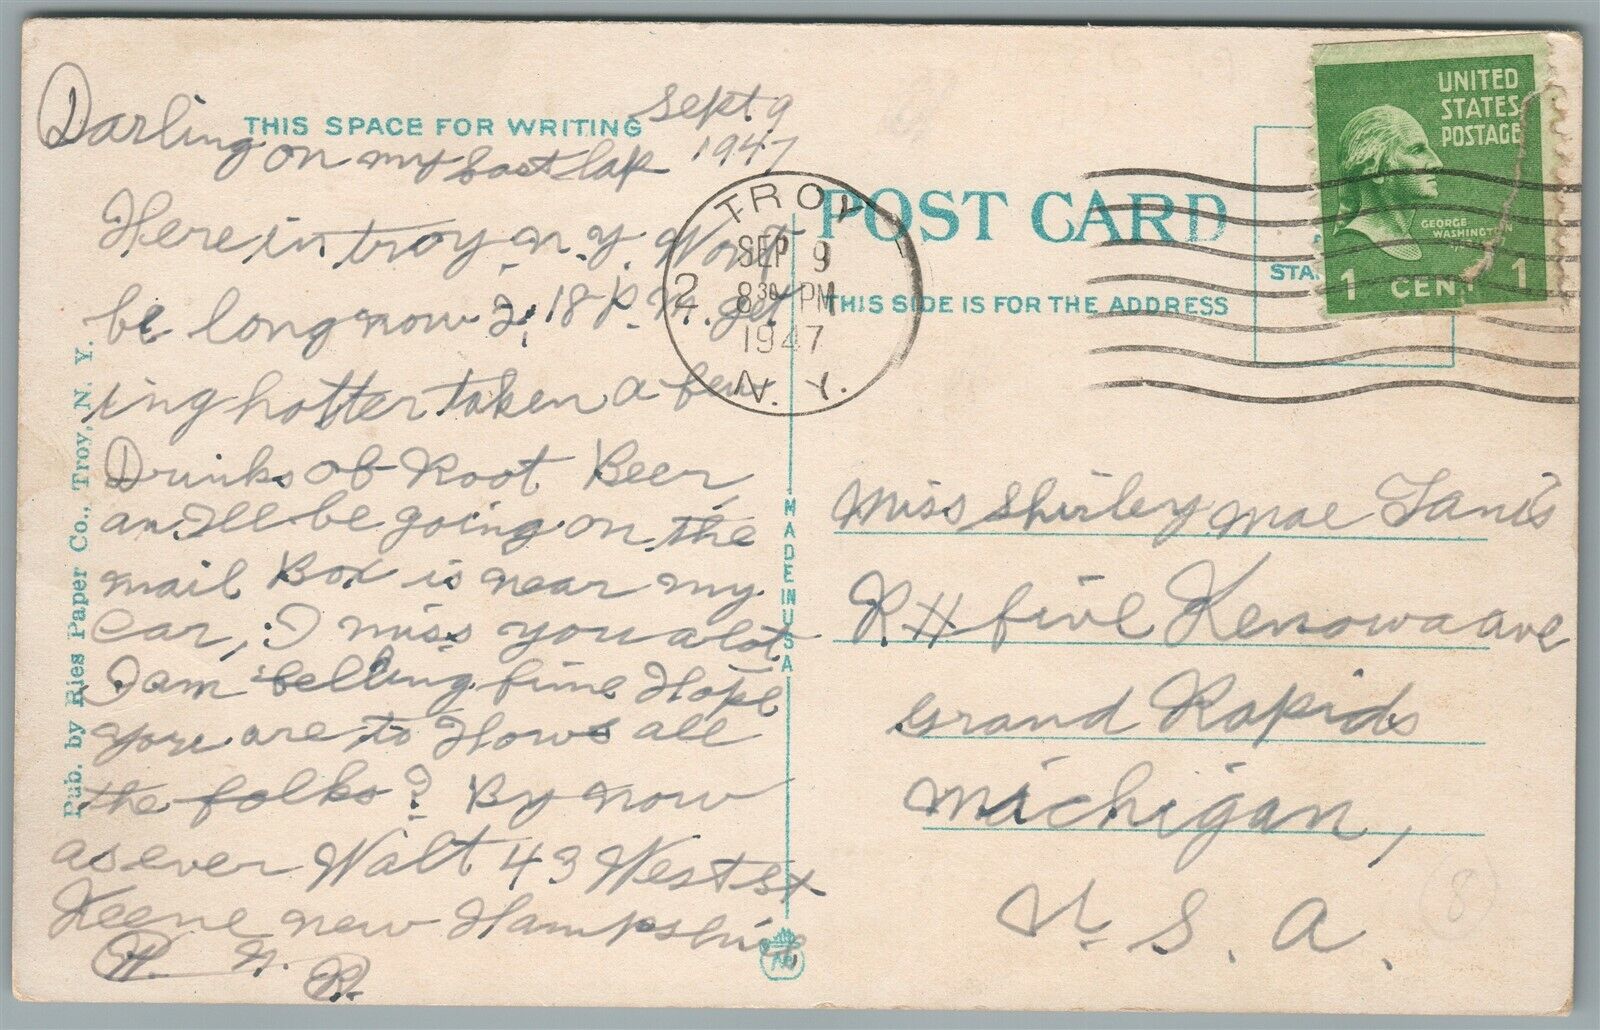 Darling
THIS SPACE FOR WRITING
Sept 9
1947
on my last lap
Here in troy N.Y. Won't
be long now 2:18 P.M. get
ing hotter taken a few
Drinks of Root Beer
an I'll be going on the
mail Box is near my
car, I miss you a lot
I am fine Hope
you are to Hows all
the folks? By now
as ever Walt 43 West St
Keene new Hampshire
Pub. by Ries Paper Co., Troy, N. Y.
MADE IN USA
TROY
SEP 9
8 30 PM
1947
N. Y.
2
POST CARD
THIS SIDE IS FOR THE ADDRESS
STA
UNITED
STATES
POSTAGE
GEORGE
WASHINGTON
1 CENT 1
Miss Shirley Mae Tanis
R# five Kenowa ave
Grand Rapids
Michigan,
U. S. A.
8